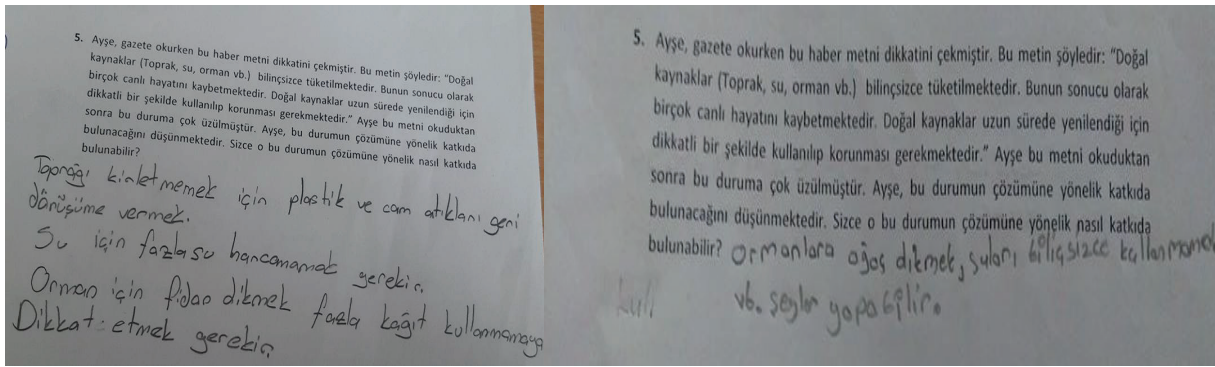 5. Ayşe, gazete okurken bu haber metni dikkatini çekmiştir. Bu metin şöyledir: “Doğal
kaynaklar (Toprak, su, orman vb.) bilinçsizce tüketilmektedir. Bunun sonucu olarak
birçok canlı hayatını kaybetmektedir. Doğal kaynaklar uzun sürede yenilendiği için
dikkatli bir şekilde kullanılıp korunması gerekmektedir.” Ayşe bu metni okuduktan
sonra bu duruma çok üzülmüştür. Ayşe, bu durumun çözümüne yönelik katkıda
bulunacağını düşünmektedir. Sizce o bu durumun çözümüne yönelik nasıl katkıda
bulunabilir?
Toprağı kirletmemek için plastik ve cam atıkları geri
dönüşüme vermek.
Su için fazla su harcamamak gerekir.
Orman için fidan dikmek fazla kağıt kullanmamaya
Dikkat etmek gerekir
5. Ayşe, gazete okurken bu haber metni dikkatini çekmiştir. Bu metin şöyledir: “Doğal
kaynaklar (Toprak, su, orman vb.) bilinçsizce tüketilmektedir. Bunun sonucu olarak
birçok canlı hayatını kaybetmektedir. Doğal kaynaklar uzun sürede yenilendiği için
dikkatli bir şekilde kullanılıp korunması gerekmektedir.” Ayşe bu metni okuduktan
sonra bu duruma çok üzülmüştür. Ayşe, bu durumun çözümüne yönelik katkıda
bulunacağını düşünmektedir. Sizce o bu durumun çözümüne yönelik nasıl katkıda
bulunabilir? Ormanlara ağaç dikmek, suları biliçsizce kullanmamak
vb. şeyler yapabilir.